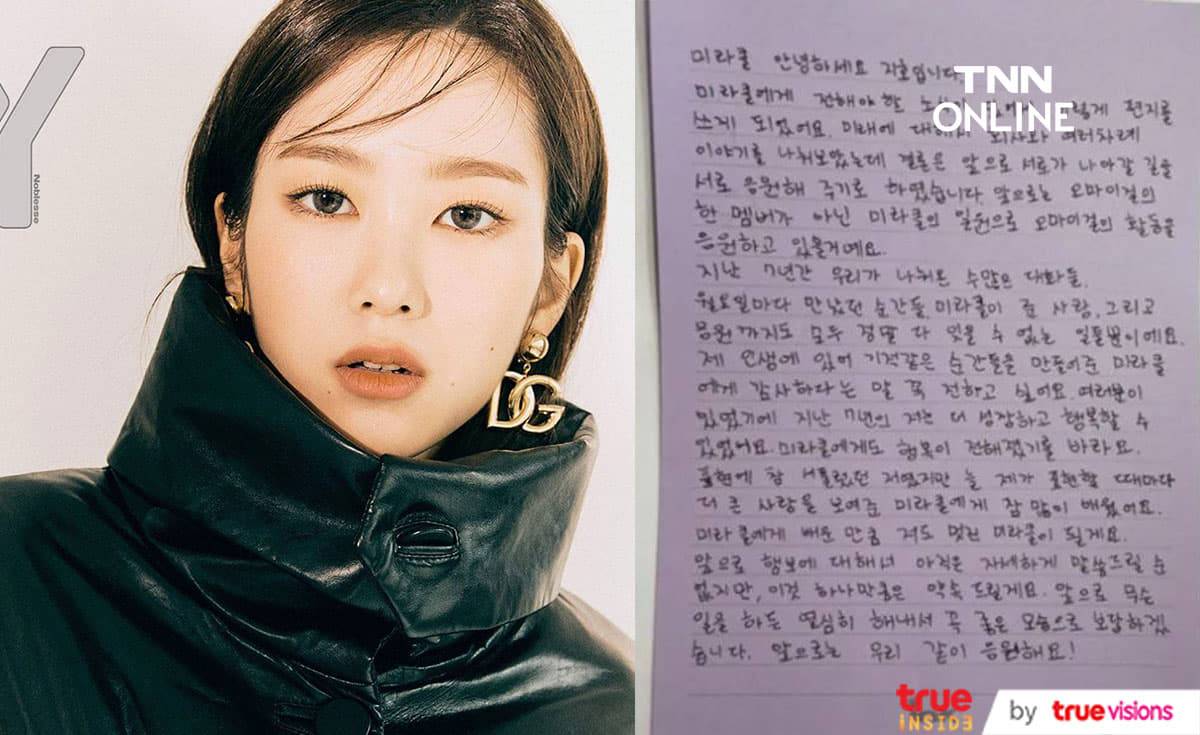 Y
Noblesse
TNN
ONLINE
미라클 안녕하세요 지호입니다.
미라클에게 전해야 할 이렇게 편지를
쓰게 되었어요. 미래에 대해서 회사와 여러차례
이야기를 나눠보았는데 결론은 앞으로 서로가 나아갈 길을
서로 응원해 주기로 하였습니다. 앞으로는 오마이걸의
한 멤버가 아닌 미라클의 일원으로 오마이걸의 활동을
응원하고 있을거예요.
지난 7년간 우리가 나눠온 수많은 대화들,
월요일마다 만났던 순간들, 미라클이 준 사랑, 그리고
응원까지도 모두 정말 다 잊을 수 없는 일들뿐이에요.
제 인생에 있어 기적같은 순간들을 만들어준 미라클
에게 감사하다는 말 꼭 전하고 싶어요. 여러분이
있었기에 지난 7년의 저는 더 성장하고 행복할 수
있었어요. 미라클에게도 행복이 전해졌기를 바라요.
표현에 참 서툴렀던 저였지만 늘 제가 표현할 때마다
더 큰 사랑을 보여준 미라클에게 참 많이 배웠어요.
미라클에게 배운 만큼 저도 멋진 미라클이 될게요.
앞으로 행보에 대해서 아직은 자세하게 말씀드릴 순
없지만, 이것 하나만큼은 약속 드릴게요. 앞으로 무슨
일을 하든 열심히 해내서 꼭 좋은 모습으로 보답하겠
습니다. 앞으로는 우리 같이 응원해요!
true
INSIDE
by truevisions